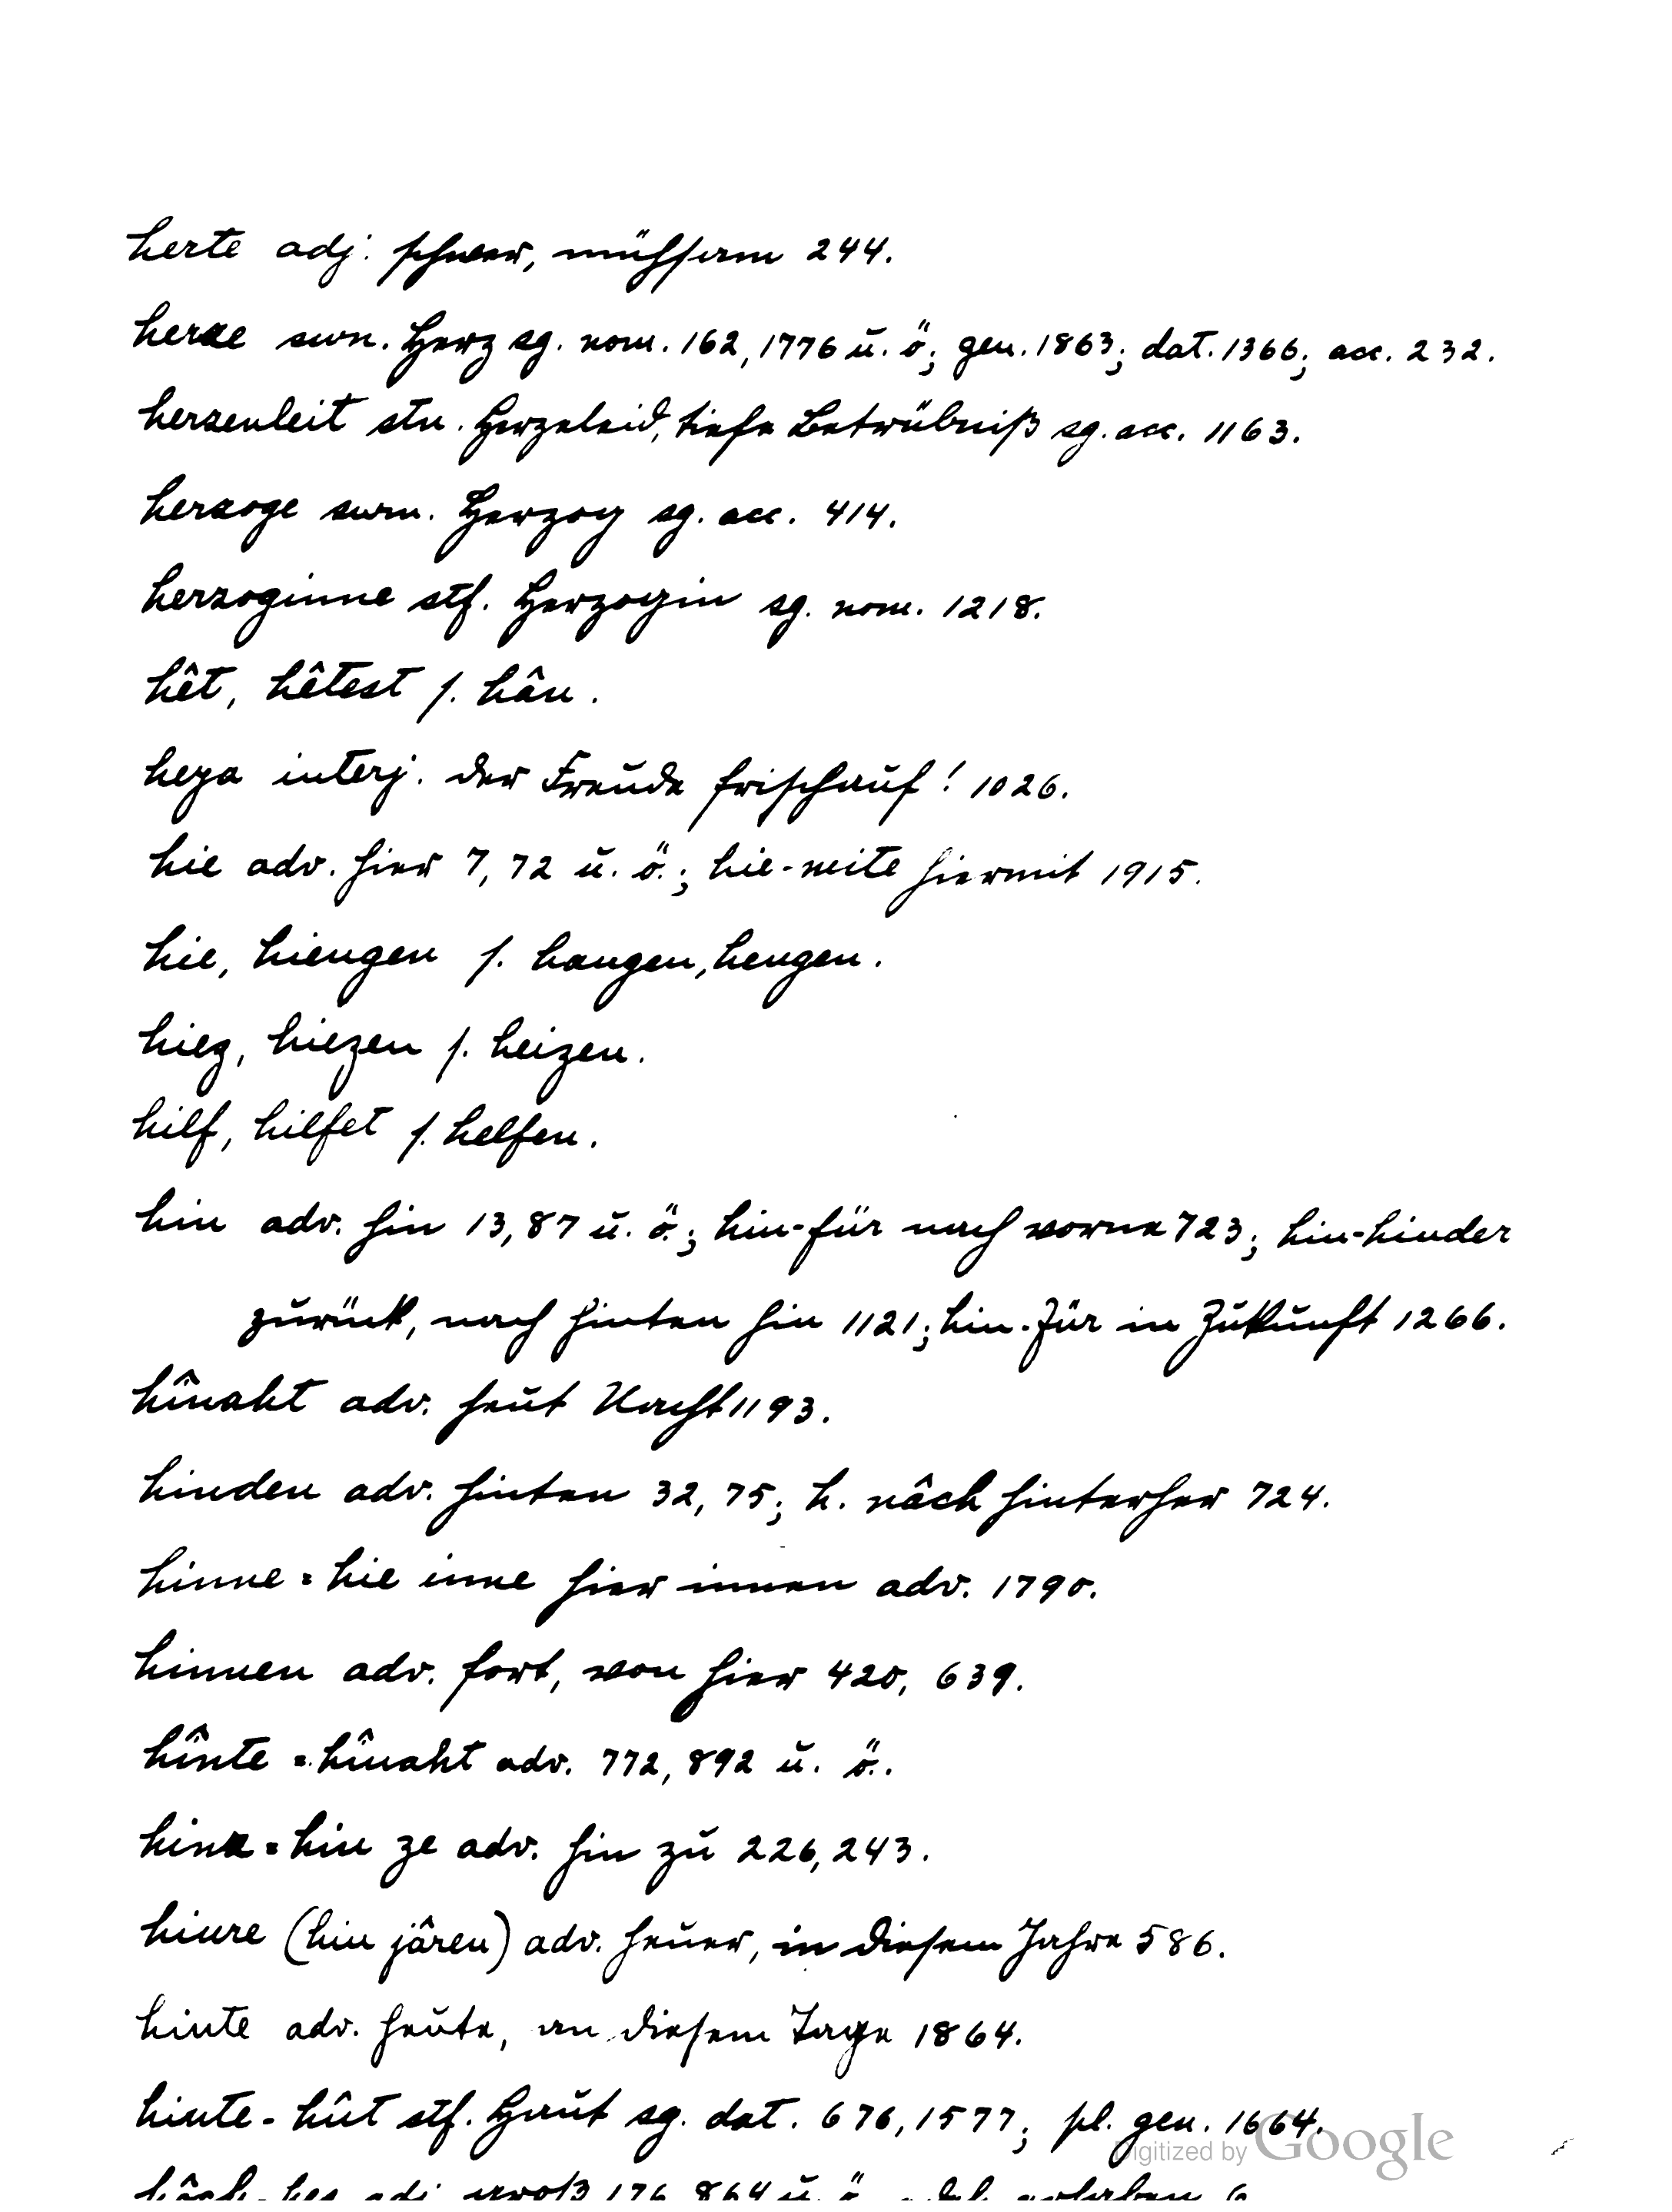 herte adj. schwer, mühsam 244.
herze swn. Herz sg. nom. 162, 1776 u. ö.; gen. 1863; dat. 1366; acc. 232.
herzenleit stn. Herzeleid, tiefe Betrübniß sg. acc. 1163.
herzoge swm. Herzog sg. acc. 414.
herzoginne stf. Herzogin sg. nom. 1218.
hêt, hêtest s. hân.
heya interj. der Freude frischauf! 1026.
hie adv. hier 7, 72 u. ö.; hie-mite hiermit 1915.
hie, hiengen s. hangen, hengen.
hiez, hiezen s. heizen.
hilf, hilfet s. helfen.
hin adv. hin 13, 87 u. ö.; hin-für nach vorne 723; hin-hinder
zurück, nach hinten hin 1121; hin-für in Zukunft 1266.
hînaht adv. heut Nacht 1193.
hinden adv. hinten 32, 75; h. nâch hinterher 724.
hinne = hie inne hier innen adv. 1790.
hinnen adv. fort, von hier 420, 639.
hînte = hînaht adv. 772, 892 u. ö.
hinze = hin ze adv. hin zu 226, 243.
hiure (hiu jâren) adv. heuer, in diesem Jahre 586.
hiute adv. heute, an diesem Tage 1864.
hiute - hût stf. Haut sg. dat. 676, 1577; pl. gen. 1664.
Digitized by Google
adj. groß 176, 864 u. ö.